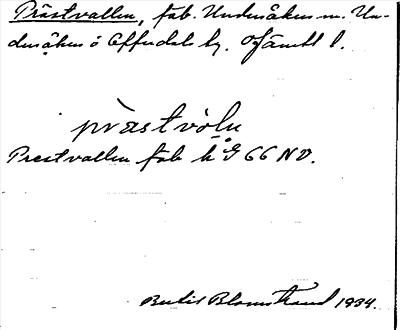 Prästvallen, fäb. Undersåkers sn. Un-
dersåkers o Offerdals tg. Jämtl l.
prästvὰln
Prestvallen fäb k G 66 NO.
Bertil Blomstrand 1934.